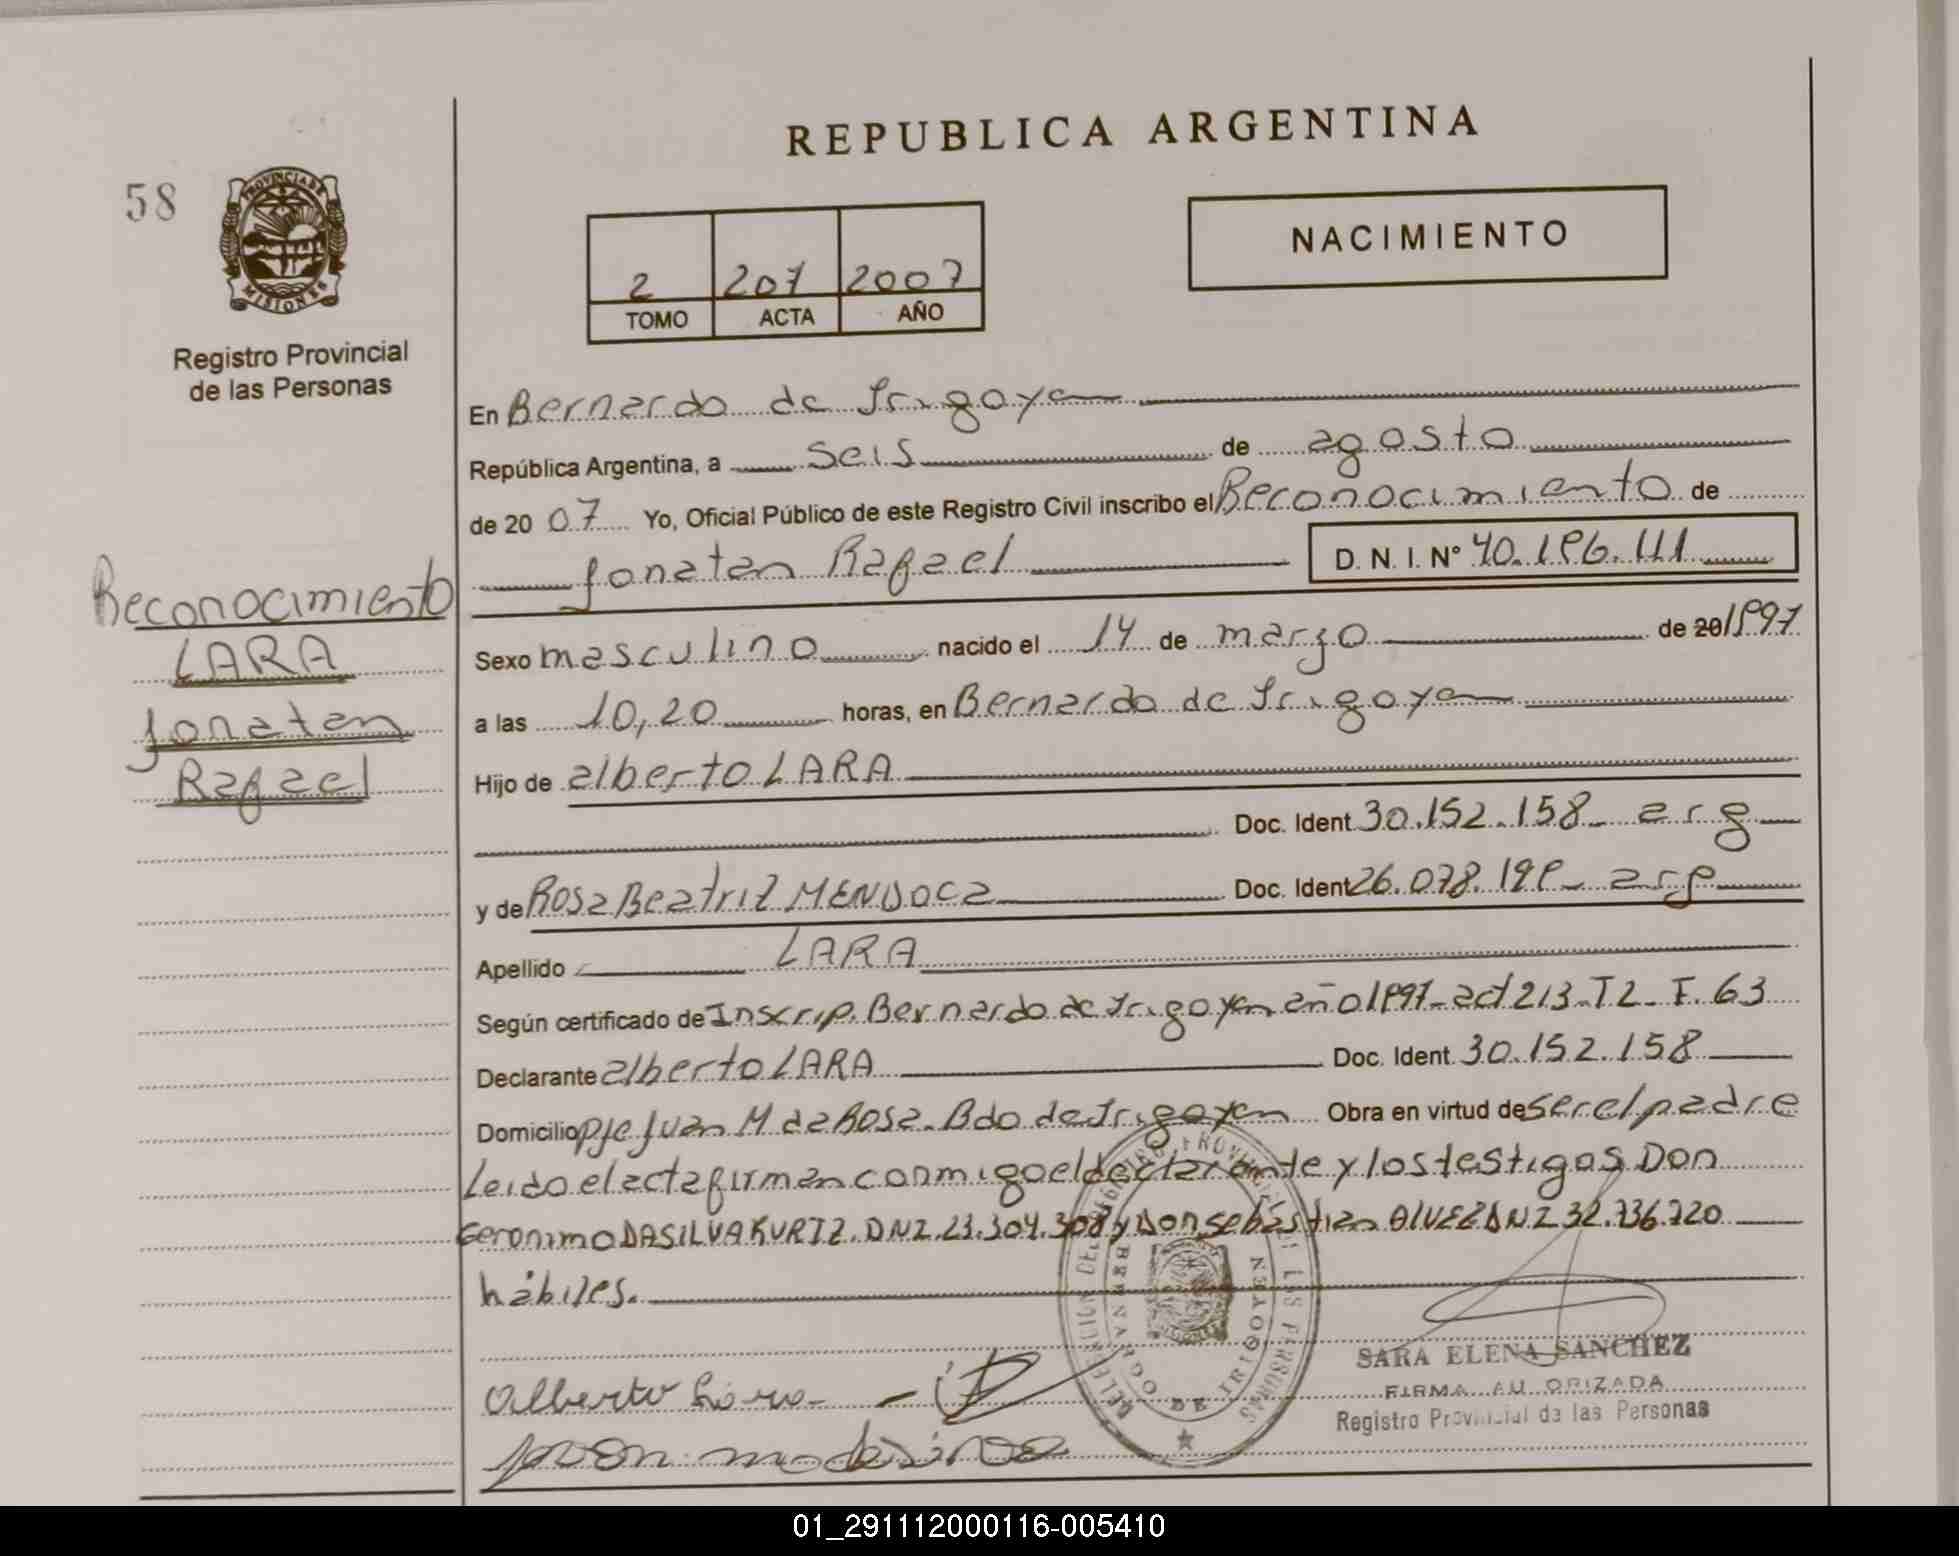 REPUBLICA ARGENTINA
58
PROVINCIA DE
MISIONES
Registro Provincial
de las Personas
2 207 2007
TOMO ACTA AÑO
NACIMIENTO
En Bernardo de Irigoyen
República Argentina, a seis de agosto
de 20 07 Yo, Oficial Público de este Registro Civil inscribo el Reconocimiento de
Jonatan Rafael D. N. I. N° 40.196.111
Reconocimiento
LARA
Jonatan
Rafael
Sexo masculino nacido el 14 de marzo de 20 1997
a las 10,20 horas, en Bernardo de Irigoyen
Hijo de alberto LARA
Doc. Ident. 30.152.158 - arg
y de Rosa Beatriz MENDOCA Doc. Ident 26.078.199 - arg
Apellido LARA
Según certificado de Inscrip. Bernardo de Irigoyen año 1997 - act 213 - T 2 - F. 63
Declarante alberto LARA Doc. Ident. 30.152.158
Domicilio pje Juan M de Rosa. Bdo de Irigoyen Obra en virtud de ser el padre
Leido el acta firman conmigo el declarante y los testigos Don
Geronimo DASILVA KURTZ. DNI. 23.304.308 y Don sebastian ALVEZ DNI 32.736.720
hábiles.
Alberto Lara
SARA ELENA SANCHEZ
FIRMA AUTORIZADA
Registro Provincial de las Personas
BERNARDO DE IRIGOYEN
01_291112000116-005410